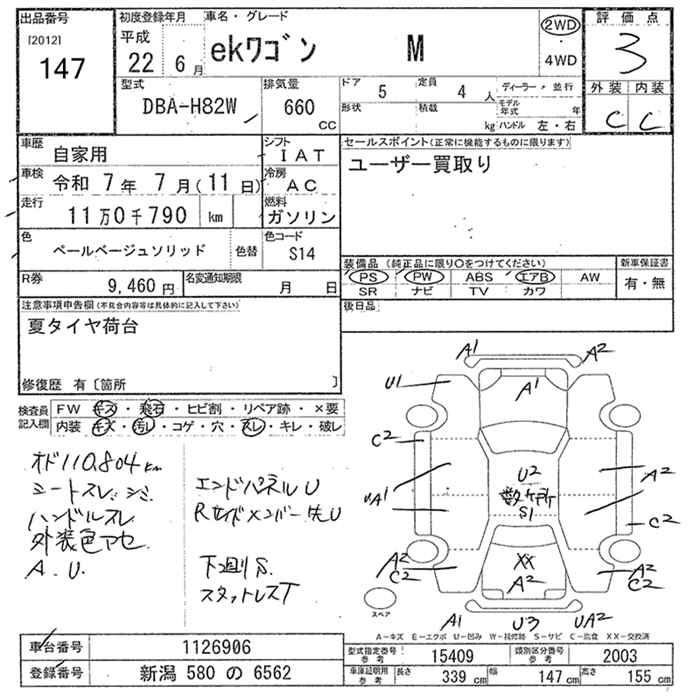 出品番号 初度登録年月 車名・グレード 評価点
[2012] 平成 22年 6月 ekワゴン M 2WD ・ 4WD 3
147
外装 内装
C C
型式 排気量 ドア 定員 ディーラー・並行
DBA-H82W 660 CC 5 4人 モデル年式 年
形状 積載 kg ハンドル 左・右
車歴 自家用 シフト IAT
車検 令和 7年 7月(11日) 冷房 AC
走行 11万0千790 km 燃料 ガソリン
色 ペールベージュソリッド 色替 色コード S14
R券 9,460円 名変通知期限 月 日
セールスポイント(正常に機能するものに限ります)
ユーザー買取り
装備品(純正品に限り○をつけてください) 新車保証書
PS PW ABS エアB AW 有・無
SR ナビ TV カワ
後日品
注意事項申告欄(不具合内容等は具体的に記入して下さい)
夏タイヤ荷台
修復歴 有〔箇所 〕
検査員記入欄 FW キズ・飛石・ヒビ割・リペア跡・×要
内装 キズ・汚レ・コゲ・穴・スレ・キレ・破レ
オド110.804km
シートスレ.シミ
ハンドルスレ
外装色アセ
A.U.
エンドパネルU
Rサイドメンバー先U
下廻りS.
スタットレスT
A1 A2
U1 A1
C2 C2
U2
数ケ所
S1
UA1 A2
A2 C2 XX A2 A2 C2
A1 U3 UA2
スペア
A-キズ E-エクボ U-凹み W-板修跡 S-サビ C-腐食 XX-交換済
車台番号 1126906
登録番号 新潟 580 の 6562
型式指定番号 参考 15409 類別区分番号 参考 2003
車庫証明用 参考 長さ 339cm 幅 147cm 高さ 155cm